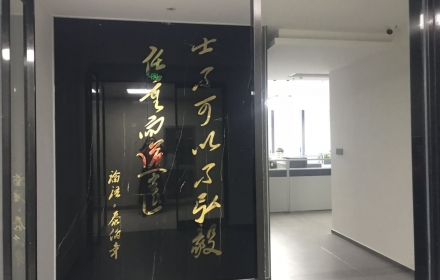 士不可以不弘毅
任重而道遠
論語·泰伯章